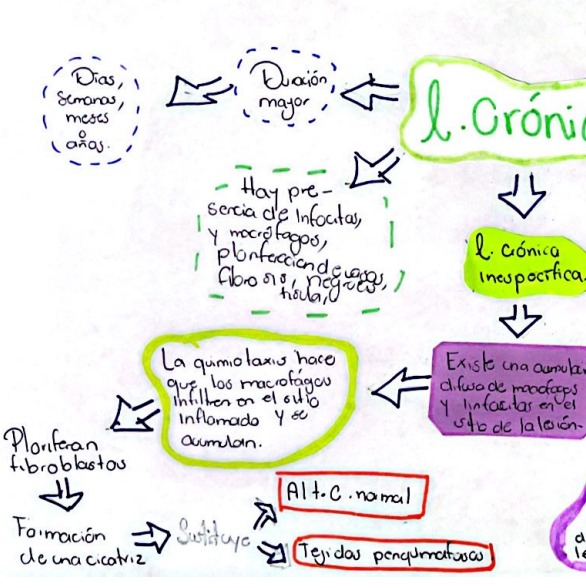 Días,
Semanas,
meses
o
años.
Duración
mayor
l. Cróni
Hay pre-
sencia de linfocitos,
y macrófagos,
proliferación de vasos,
fibrosis,
l. crónica
inespecífica.
Existe una acumula
difusa de macrófagos
y linfocitos en el
sitio de la lesión.
La quimiotaxis hace
que los macrófagos
infiltren en el sitio
inflamado y se
acumulan.
Proliferan
fibroblastos
Formación
de una cicatriz
Sustituye
Alt. C. normal
Tejidos parenquimatosos